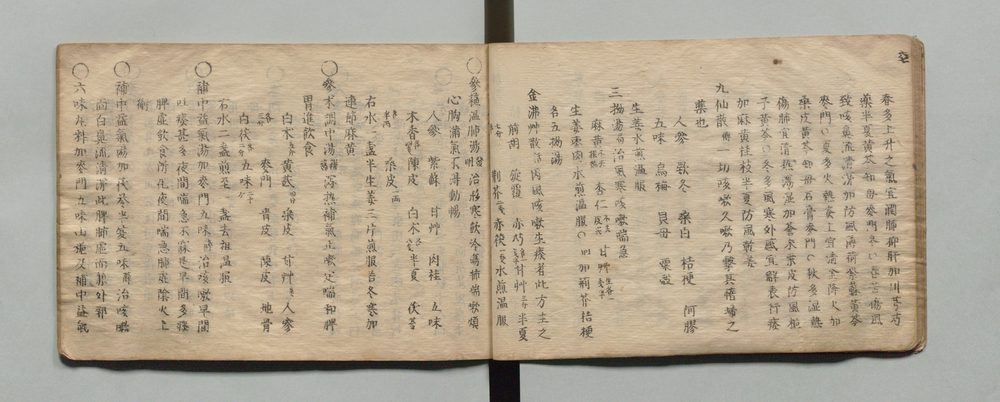 春多上升之氣宜潤肺抑肝加川芎芍
藥半夏黃芩知母麥門
致咳鼻流清涕加防風薄荷紫蘇黃芩
麥門〇夏多火熱炎上宜清金降火加
桑皮黃芩知母石膏麥門〇秋多濕熱
傷肺宜清熱瀉濕加蒼朮桑皮防風梔
子黃芩〇冬多風寒外感宜解表行痰
加麻黃桂枝半夏防風乾姜
九仙散治一切咳嗽久嗽乃擊其惰歸之
藥也
人參 款冬 桑白 桔梗 阿膠
五味 烏梅 貝母 粟殼
生姜水煎溫服
三拗湯易治風寒咳嗽喘急
麻黃 杏仁 甘艸
生姜棗肉水煎溫服〇加荊芥桔梗
名五拗湯
金沸艸散治因風咳嗽生痰者此方主之
前胡 旋覆 赤芍 甘艸 半夏
荊芥 赤茯 水煎溫服
〇參穗溫肺湯 治形寒飲冷傷肺喘嗽煩
心胸滿氣不得動暢
人參 紫蘇 甘艸 肉桂 五味
木香 陳皮 白朮 半夏 伏苓
桑皮
右水一盞半生姜三片煎服台冬寒加
連節麻黃
〇參朮調中湯 瀉熱補氣止嗽定喘和脾
胃進飲食
白朮 黃芪 桑皮 甘艸 人參
麥門 青皮 陳皮 地骨
白茯 五味
右水二盞煎至一盞去柤溫服
〇補中益氣湯加麥門五味 治咳嗽早間
吐痰甚多夜間喘急不寐是早間多痰
脾虛飲食所化夜間喘急肺虛陰火上
衝
〇補中益氣湯加茯苓半夏五味 治咳嗽
而白鼻流清涕此脾肺虛而兼外邪
〇六味丸料加麥門五味山梔又補中益氣